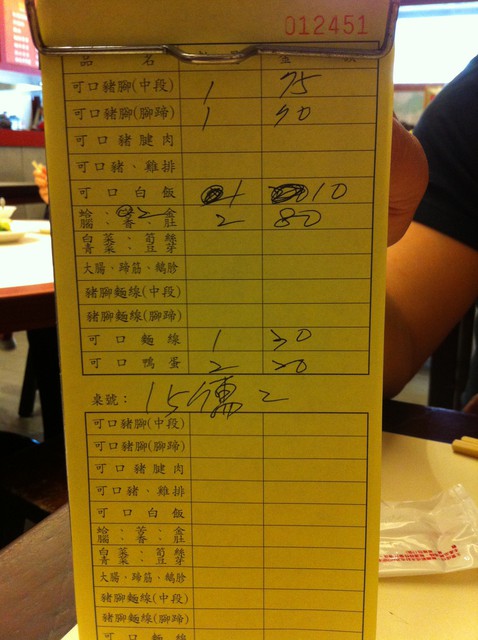 012451
品 名
可口豬腳(中段) 1 75
可口豬腳(腳蹄) 1 90
可口豬腱肉
可口豬、雞排
可口白飯 1 10
蛤、2、金 2 80
腦、香、肚
白菜、筍絲
青菜、豆芽
大腸、蹄筋、鵝胗
豬腳麵線(中段)
豬腳麵線(腳蹄)
可口麵線 1 30
可口鴨蛋 2 20
桌號: 15 2
可口豬腳(中段)
可口豬腳(腳蹄)
可口豬腱肉
可口豬、雞排
可口白飯
蛤、芳、金
腦、香、肚
白菜、筍絲
青菜、豆芽
大腸、蹄筋、鵝胗
豬腳麵線(中段)
豬腳麵線(腳蹄)
可口麵線